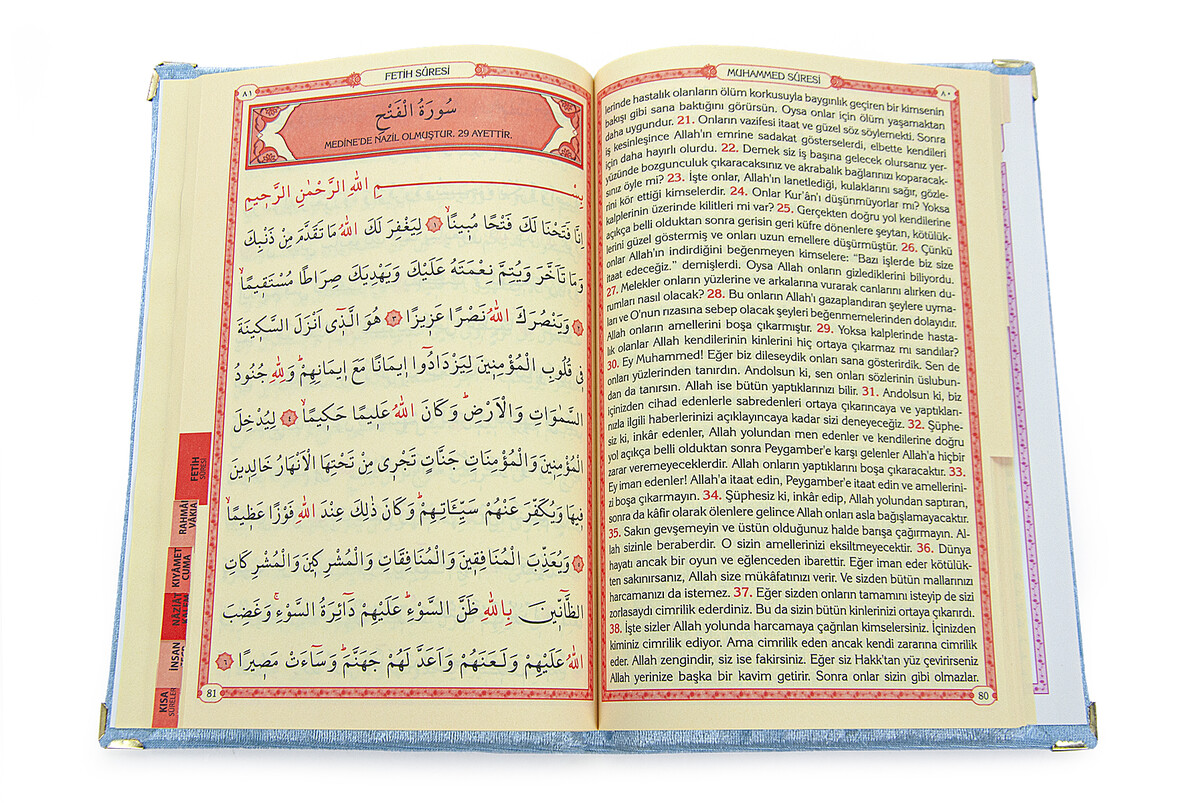 MUHAMMED SÛRESİ
٨٠
lerinde hastalık olanların ölüm korkusuyla baygınlık geçiren bir kimsenin
bakışı gibi sana baktığını görürsün. Oysa onlar için ölüm yaşamaktan
daha uygundur. 21. Onların vazifesi itaat ve güzel söz söylemekti. Sonra
iş kesinleşince Allah'ın emrine sadakat gösterselerdi, elbette kendileri
için daha hayırlı olurdu. 22. Demek siz iş başına gelecek olursanız yer-
yüzünde bozgunculuk çıkaracaksınız ve akrabalık bağlarınızı koparacak-
sınız öyle mi? 23. İşte onlar, Allah'ın lanetlediği, kulaklarını sağır, gözle-
rini kör ettiği kimselerdir. 24. Onlar Kur'ân'ı düşünmüyorlar mı? Yoksa
kalplerinin üzerinde kilitleri mi var? 25. Gerçekten doğru yol kendilerine
açıkça belli olduktan sonra gerisin geri küfre dönenlere şeytan, kötülük-
lerini güzel göstermiş ve onları uzun emellere düşürmüştür. 26. Çünkü
onlar Allah'ın indirdiğini beğenmeyen kimselere: “Bazı işlerde biz size
itaat edeceğiz.” demişlerdi. Oysa Allah onların gizlediklerini biliyordu.
27. Melekler onların yüzlerine ve arkalarına vurarak canlarını alırken du-
rumları nasıl olacak? 28. Bu onların Allah'ı gazaplandıran şeylere uyma-
ları ve O'nun rızasına sebep olacak şeyleri beğenmemelerinden dolayıdır.
Allah onların amellerini boşa çıkarmıştır. 29. Yoksa kalplerinde hasta-
lık olanlar Allah kendilerinin kinlerini hiç ortaya çıkarmaz mı sandılar?
30. Ey Muhammed! Eğer biz dileseydik onları sana gösterirdik. Sen de
onları yüzlerinden tanırdın. Andolsun ki, sen onları sözlerinin üslubun-
dan da tanırsın. Allah ise bütün yaptıklarınızı bilir. 31. Andolsun ki, biz
içinizden cihad edenlerle sabredenleri ortaya çıkarıncaya ve yaptıkları-
nızla ilgili haberlerinizi açıklayıncaya kadar sizi deneyeceğiz. 32. Şüphe-
siz ki, inkâr edenler, Allah yolundan men edenler ve kendilerine doğru
yol açıkça belli olduktan sonra Peygamber'e karşı gelenler Allah'a hiçbir
zarar veremeyeceklerdir. Allah onların yaptıklarını boşa çıkaracaktır. 33.
Ey iman edenler! Allah'a itaat edin, Peygamber'e itaat edin ve amellerini-
zi boşa çıkarmayın. 34. Şüphesiz ki, inkâr edip, Allah yolundan saptıran,
sonra da kâfir olarak ölenlere gelince Allah onları asla bağışlamayacaktır.
35. Sakın gevşemeyin ve üstün olduğunuz halde barışa çağırmayın. Al-
lah sizinle beraberdir. O sizin amellerinizi eksiltmeyecektir. 36. Dünya
hayatı ancak bir oyun ve eğlenceden ibarettir. Eğer iman eder kötülük-
ten sakınırsanız, Allah size mükâfatınızı verir. Ve sizden bütün mallarınızı
harcamanızı da istemez. 37. Eğer sizden onların tamamını isteyip de sizi
zorlasaydı cimrilik ederdiniz. Bu da sizin bütün kinlerinizi ortaya çıkarırdı.
38. İşte sizler Allah yolunda harcamaya çağrılan kimselersiniz. İçinizden
kiminiz cimrilik ediyor. Ama cimrilik eden ancak kendi zararına cimrilik
eder. Allah zengindir, siz ise fakirsiniz. Eğer siz Hakk'tan yüz çevirirseniz
Allah yerinize başka bir kavim getirir. Sonra onlar sizin gibi olmazlar.
80
FETİH SÛRESİ
٨١
سُورَةُ الْفَتْحِ
MEDİNE'DE NAZİL OLMUŞTUR. 29 AYETTİR.
بِسْمِ اللهِ الرَّحْمٰنِ الرَّحٖيمِ
اِنَّا فَتَحْنَا لَكَ فَتْحًا مُبٖينًاۙ ١ لِيَغْفِرَ لَكَ اللهُ مَا تَقَدَّمَ مِنْ ذَنْبِكَ
وَمَا تَاَخَّرَ وَيُتِمَّ نِعْمَتَهُ عَلَيْكَ وَيَهْدِيَكَ صِرَاطًا مُسْتَقٖيمًاۙ
٢ وَيَنْصُرَكَ اللهُ نَصْرًا عَزٖيزًا ٣ هُوَ الَّذٖٓى اَنْزَلَ السَّكٖينَةَ
فٖى قُلُوبِ الْمُؤْمِنٖينَ لِيَزْدَادُٓوا اٖيمَانًا مَعَ اٖيمَانِهِمْؕ وَلِلهِ جُنُودُ
السَّمٰوَاتِ وَالْاَرْضِؕ وَكَانَ اللهُ عَلٖيمًا حَكٖيمًاۙ ٤ لِيُدْخِلَ
الْمُؤْمِنٖينَ وَالْمُؤْمِنَاتِ جَنَّاتٍ تَجْرٖى مِنْ تَحْتِهَا الْاَنْهَارُ خَالِدٖينَ
فٖيهَا وَيُكَفِّرَ عَنْهُمْ سَيِّـَٔاتِهِمْؕ وَكَانَ ذٰلِكَ عِنْدَ اللهِ فَوْزًا عَظٖيمًاۙ
٥ وَيُعَذِّبَ الْمُنَافِقٖينَ وَالْمُنَافِقَاتِ وَالْمُشْرِكٖينَ وَالْمُشْرِكَاتِ
الظَّٓانّٖينَ بِاللهِ ظَنَّ السَّوْءِؕ عَلَيْهِمْ دَٓائِرَةُ السَّوْءِۚ وَغَضِبَ
اللهُ عَلَيْهِمْ وَلَعَنَهُمْ وَاَعَدَّ لَهُمْ جَهَنَّمَؕ وَسَٓاءَتْ مَصٖيرًا ٦
81
FETİH
SÛRESİ
RAHMÂN
VÂKIA
KIYÂMET
CUMA
NÂZİÂT
İNSAN
KISA
SÛRELER